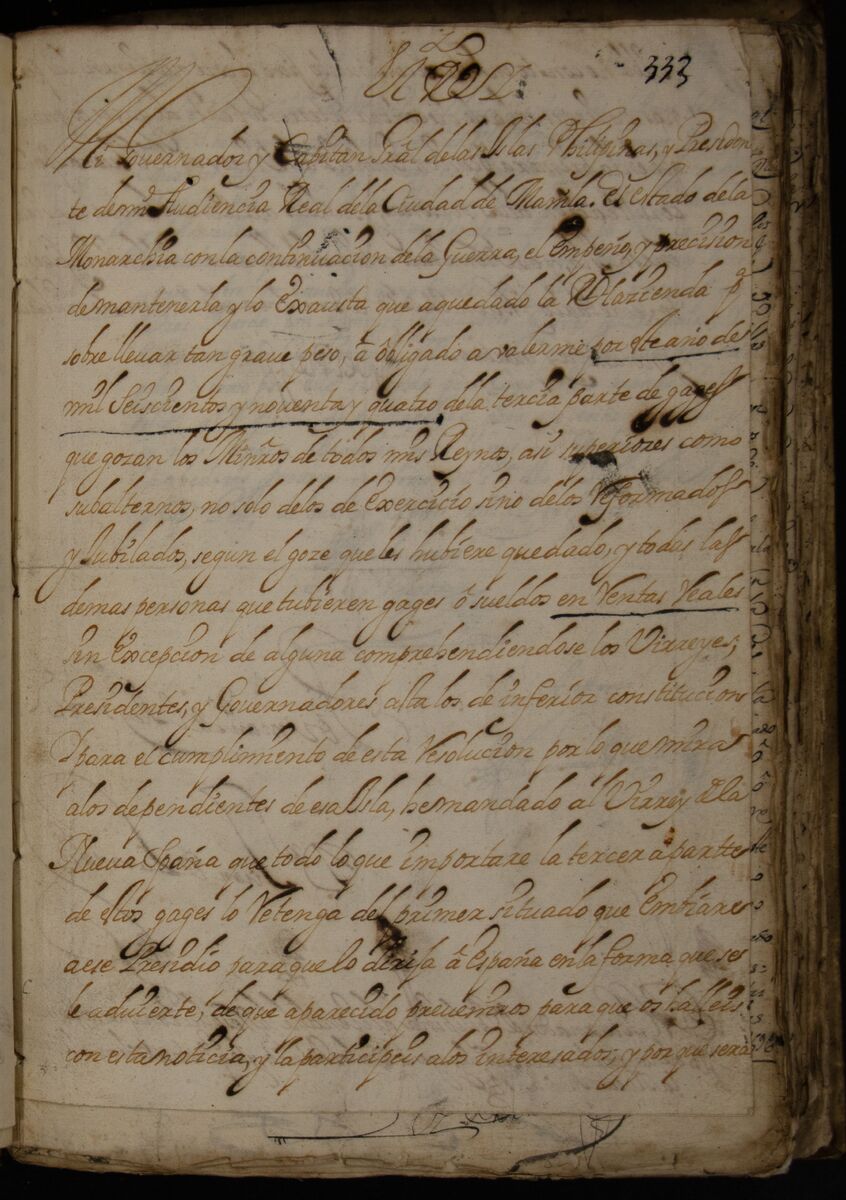 333
Mi Governador y Capitan Gral de las Islas Philipinas, y Presiden
te de mi Audiencia Real de la Ciudad de Manila. El estado de la
Monarchia con la continuacion de la Guerra, el empeño, y precision
de mantenerla y lo Exausta que a quedado la Rl Hazienda pª
sobrellevar tan grave peso, a obligado a valerme por este año de
mil Seiscientos y noventa y quatro de la tercia parte de gages
que gozan los Minros de todos mis Reynos, asi superiores como
subalternos, no solo de los de Exercicio sino de los Reformados
y Jubilados, segun el goze que les hubiere quedado, y todas las
demas personas que tubieren gages o sueldos en Rentas Reales
sin Excepcion de alguna comprehendiendose los Virreyes,
Presidentes, y Governadores asta los de inferior constitucion
para el cumplimiento de esta Resolucion por lo que mira
a los dependientes de esa Isla, he mandado al Virrey de la
Nueva España que todo lo que importare la tercera parte
de estos gages lo Retenga del primer situado que Embiare
a ese Presidio para que lo dirija a España en la forma que se
le advierte, de que a parecido preveniros para que os halleis
con esta noticia, y la participeis a los interesados, y porque sera